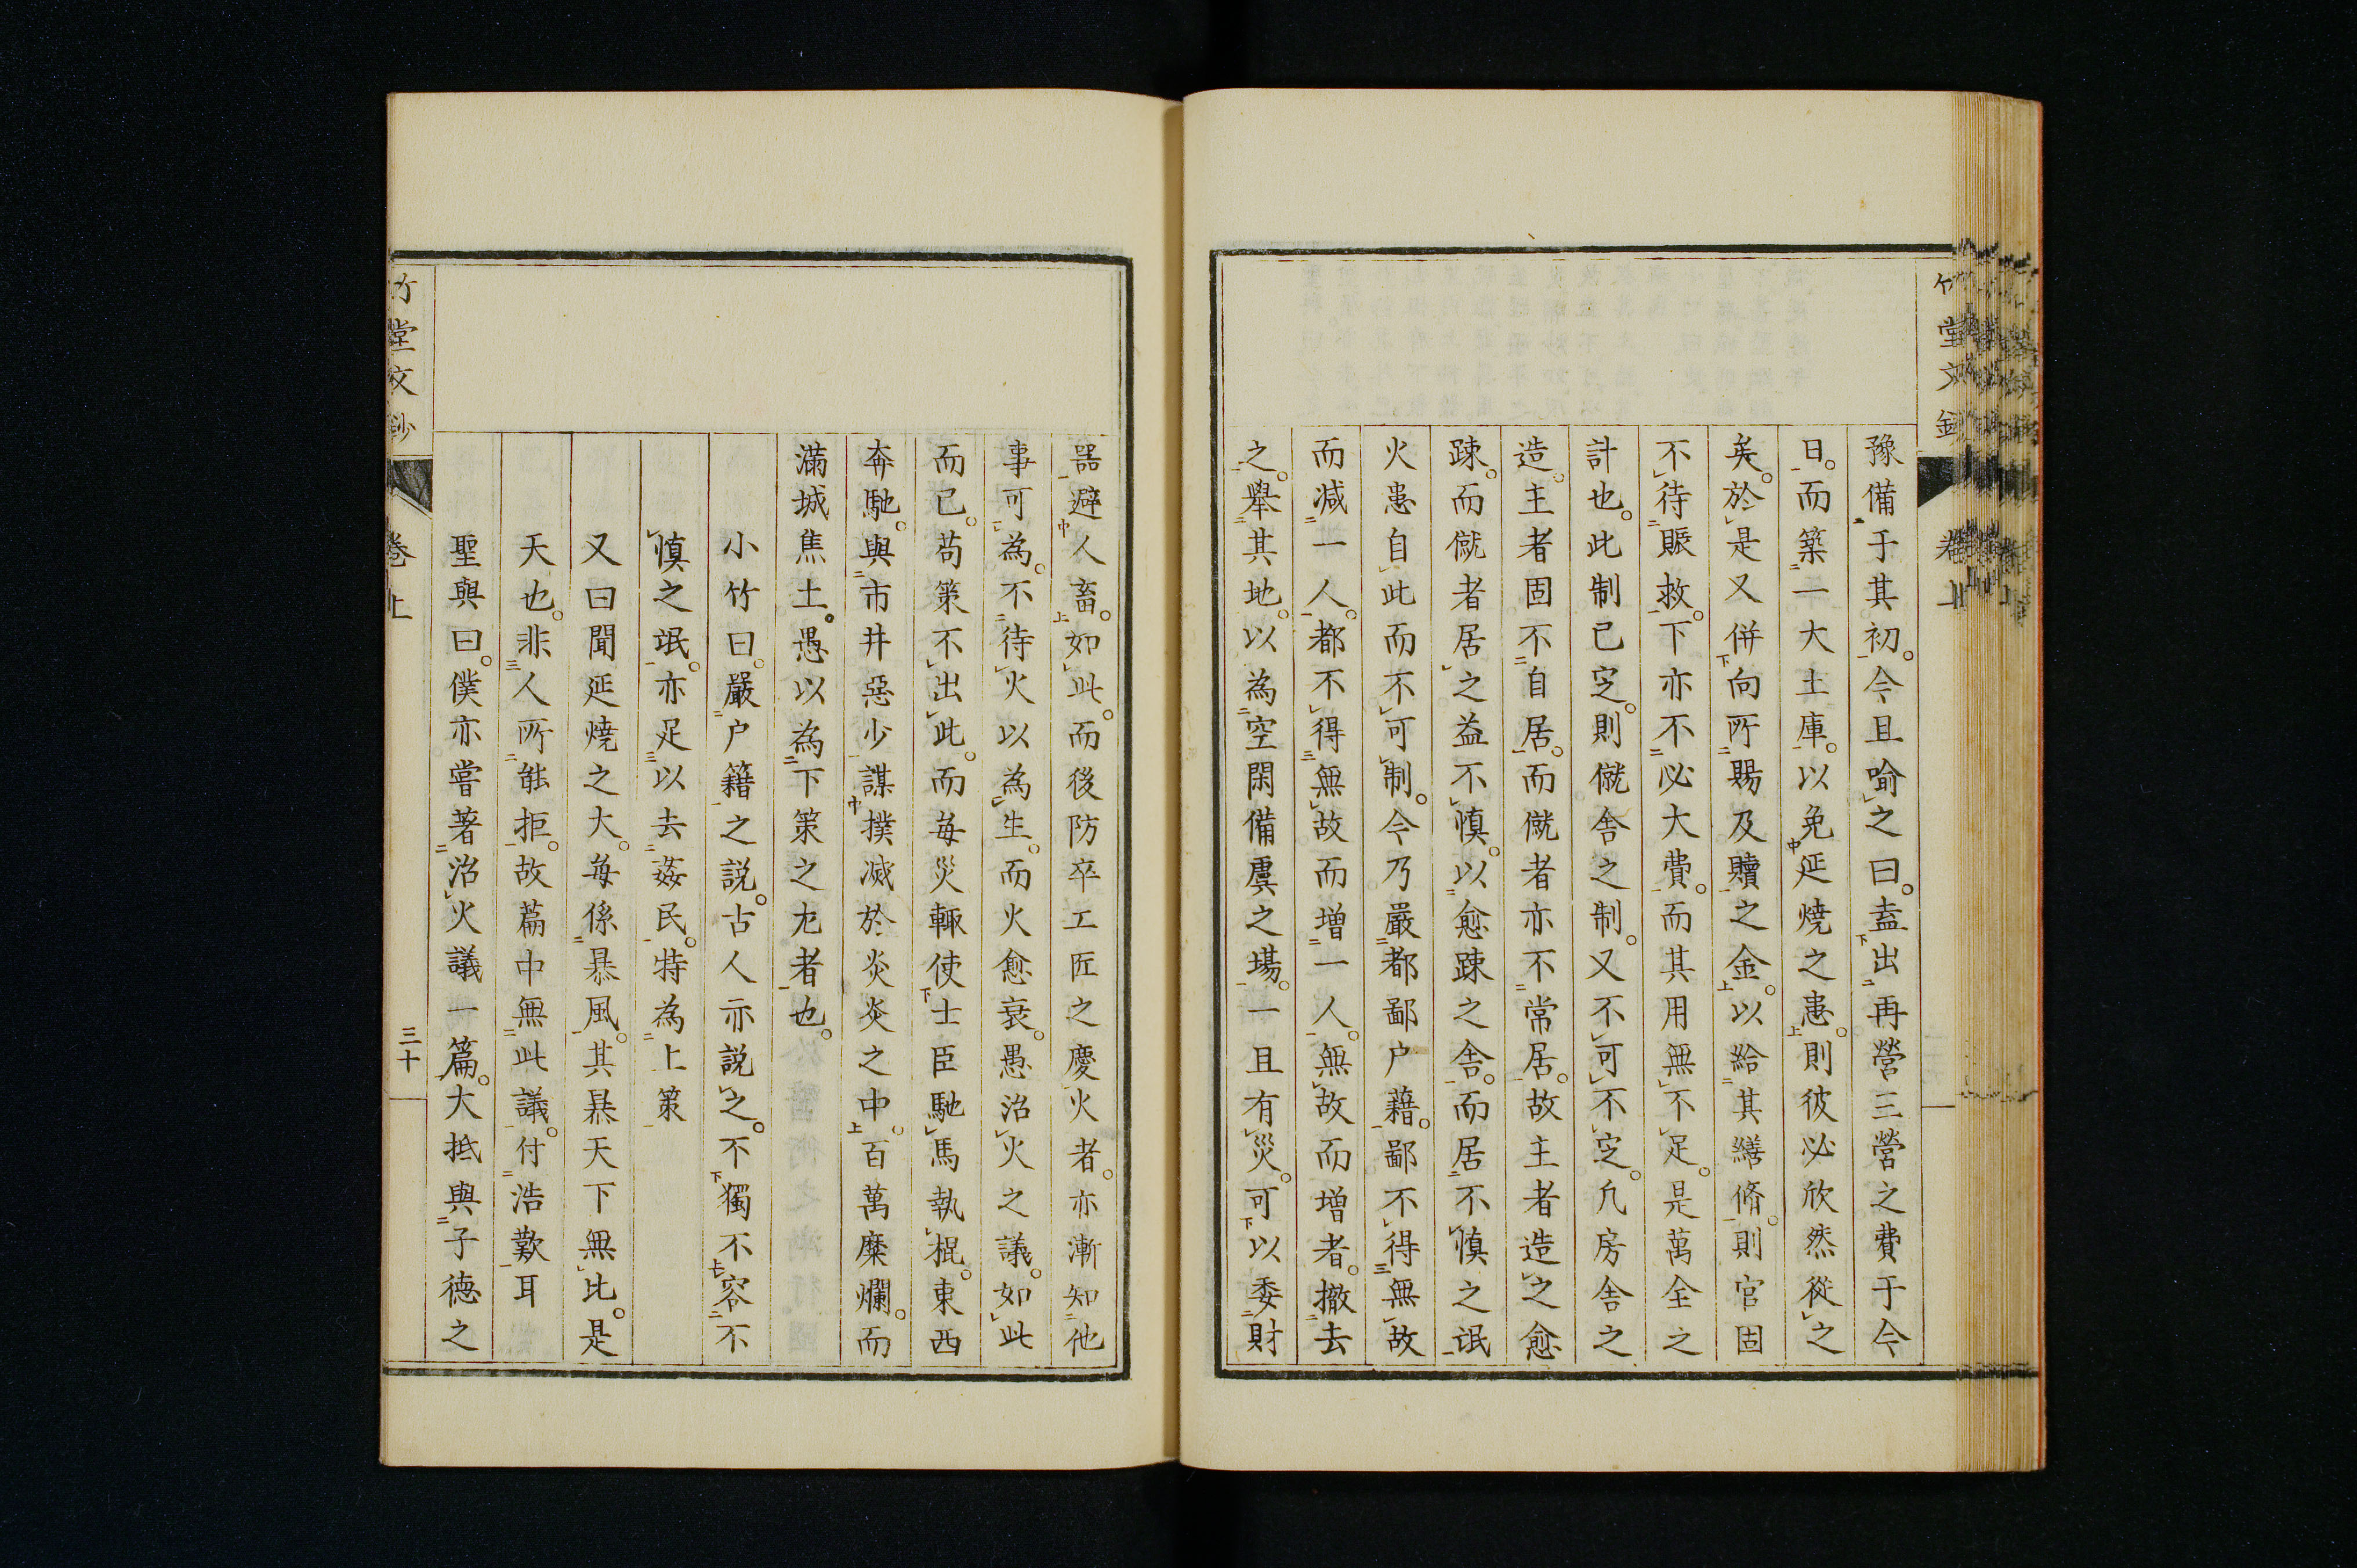 豫備于其初。今且喻之曰。盍出再營三營之費于今
日。而築一大土庫。以免延燒之患。則彼必欣然從之
矣。於是又併向所賜及贖之金。以給其繕脩。則官固
不待賑救。下亦不必大費。而其用無不足。是萬全之
計也。此制已定。則僦舍之制。又不可不定。凡房舍之
造。主者固不自居。而僦者亦不常居。故主者造之愈
踈。而僦者居之益不慎。以愈踈之舍。而居不慎之氓
火患自此而不可制。今乃嚴都鄙户藉。鄙不得無故
而減一人。都不得無故而增一人。無故而增者。撤去
之。舉其地。以為空閑備虞之場。一旦有災。可以委財
器避人畜。如此。而後防卒工匠之慶火者。亦漸知他
事可為。不待火以為生。而火愈衰。愚治火之議。如此
而已。苟策不出此。而每災輒使士臣馳馬執棍。東西
奔馳。與市井惡少謀撲滅於炎炎之中。百萬糜爛。而
滿城焦土。愚以為下策之尤者也。
小竹曰。嚴户籍之説。古人亦説之。不獨不容不
慎之氓。亦足以去姦民。特為上策
又曰聞延燒之大。每係暴風。其暴天下無比。是
天也。非人所能拒。故篇中無此議。付浩歎耳
聖與曰。僕亦嘗著治火議一篇。大抵與子德之
竹堂文鈔
卷上
三十
竹堂文鈔
卷上